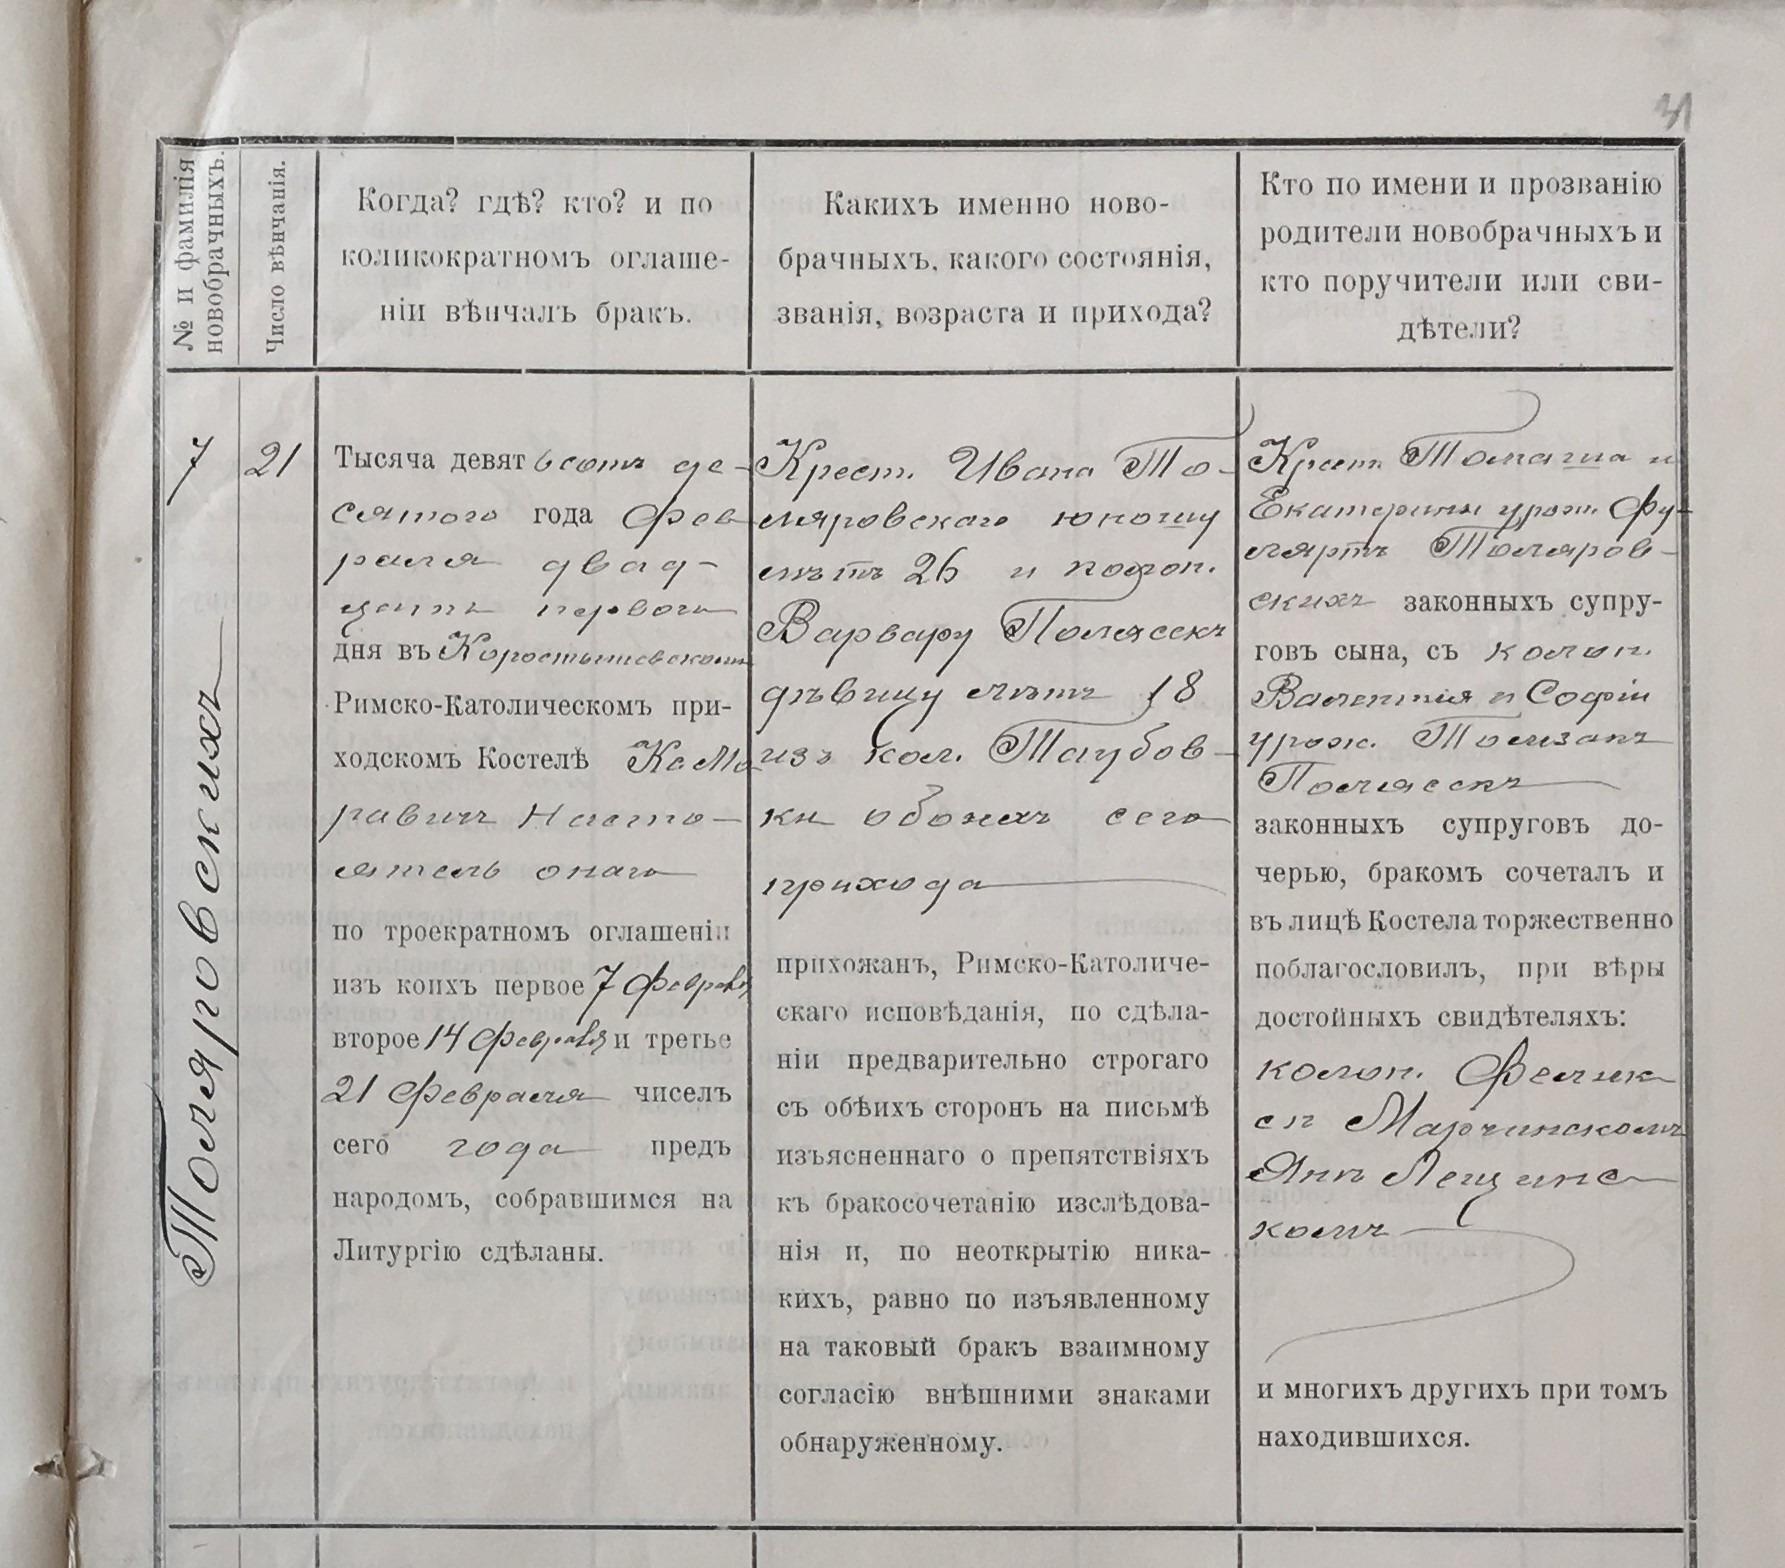 31
№ и фамилія
новобрачныхъ.
Число вѣнчанія.
Когда? гдѣ? кто? и по
коликократномъ оглаше-
ніи вѣнчалъ бракъ.
Какихъ именно ново-
брачныхъ, какого состоянія,
званія, возраста и прихода?
Кто по имени и прозванію
родители новобрачныхъ и
кто поручители или сви-
дѣтели?
7
Толяровскихъ
21
Тысяча девятьсотъ де-
сятого года Фев
раля двад-
цать перваго
дня въ Коростышевскомъ
Римско-Католическомъ при-
ходскомъ Костелѣ
Насто-
ятель онаго
по троекратномъ оглашеніи
изъ коихъ первое 7 Февраля
второе 14 Февраля и третье
21 Февраля чиселъ
сего года предъ
народомъ, собравшимся на
Литургію сдѣланы.
Крест. Ивана То-
ляровскаго юношу
лѣтъ 26 и колон.
Варвару Полясекъ
дѣвицу лѣтъ 18
изъ кол. Таубов-
ки обоихъ сего
прихода
прихожанъ, Римско-Католиче-
скаго исповѣданія, по сдѣла-
ніи предварительно строгаго
съ обѣихъ сторонъ на письмѣ
изъясненнаго о препятствіяхъ
къ бракосочетанію изслѣдова-
нія и, по неоткрытію ника-
кихъ, равно по изъявленному
на таковый бракъ взаимному
согласію внѣшними знаками
обнаруженному.
Крест. Томаша и
Екатерины урож. Фу-
лярть Толяров-
скихъ законныхъ супру-
говъ сына, съ колон.
Валентія и Софіи
урож.
Полясекъ
законныхъ супруговъ до-
черью, бракомъ сочеталъ и
въ лицѣ Костела торжественно
поблагословилъ, при вѣры
достойныхъ свидѣтеляхъ:
колон. Феликс
сѣ Марчинскомъ
Янѣ Лещинс
комъ
и многихъ другихъ при томъ
находившихся.